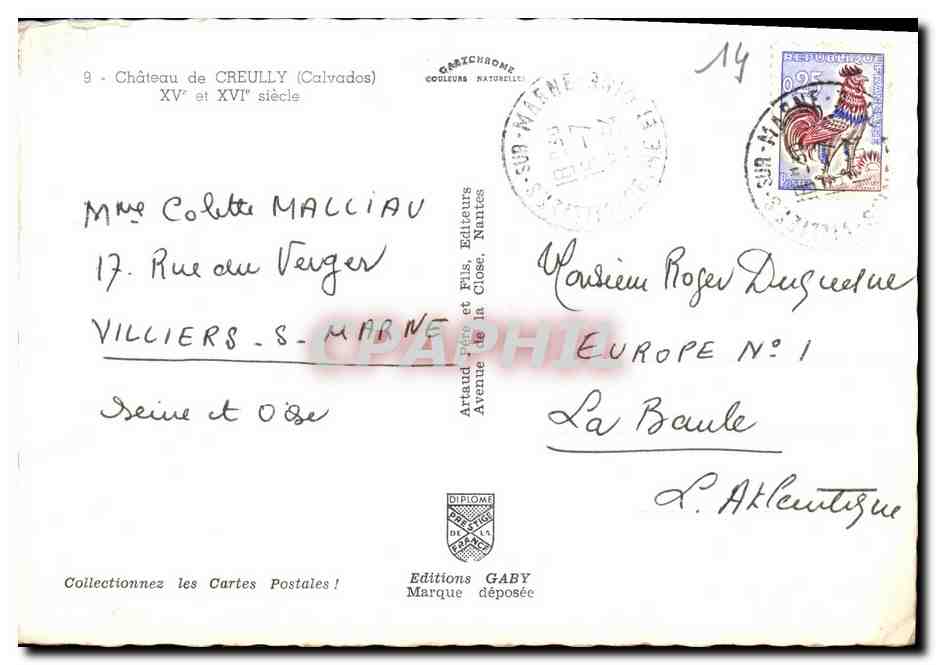 9 - Château de CREULLY (Calvados)
XVe et XVIe siècle
GABYCHROME
COULEURS NATURELLES
14
REPUBLIQUE FRANÇAISE
0,25
POSTES
S-SUR-MARNE
S-SUR-MARNE
Mme Colette MALLIAU
17. Rue du Verger
VILLIERS-S-MARNE
Seine et Oise
Artaud Père et Fils, Editeurs
Avenue de la Close, Nantes
Monsieur Roger Duquesne
EUROPE No 1
La Baule
L. Atlantique
CPAPHIL
DIPLOME
PRESTIGE
DE LA
FRANCE
Collectionnez les Cartes Postales !
Editions GABY
Marque déposée